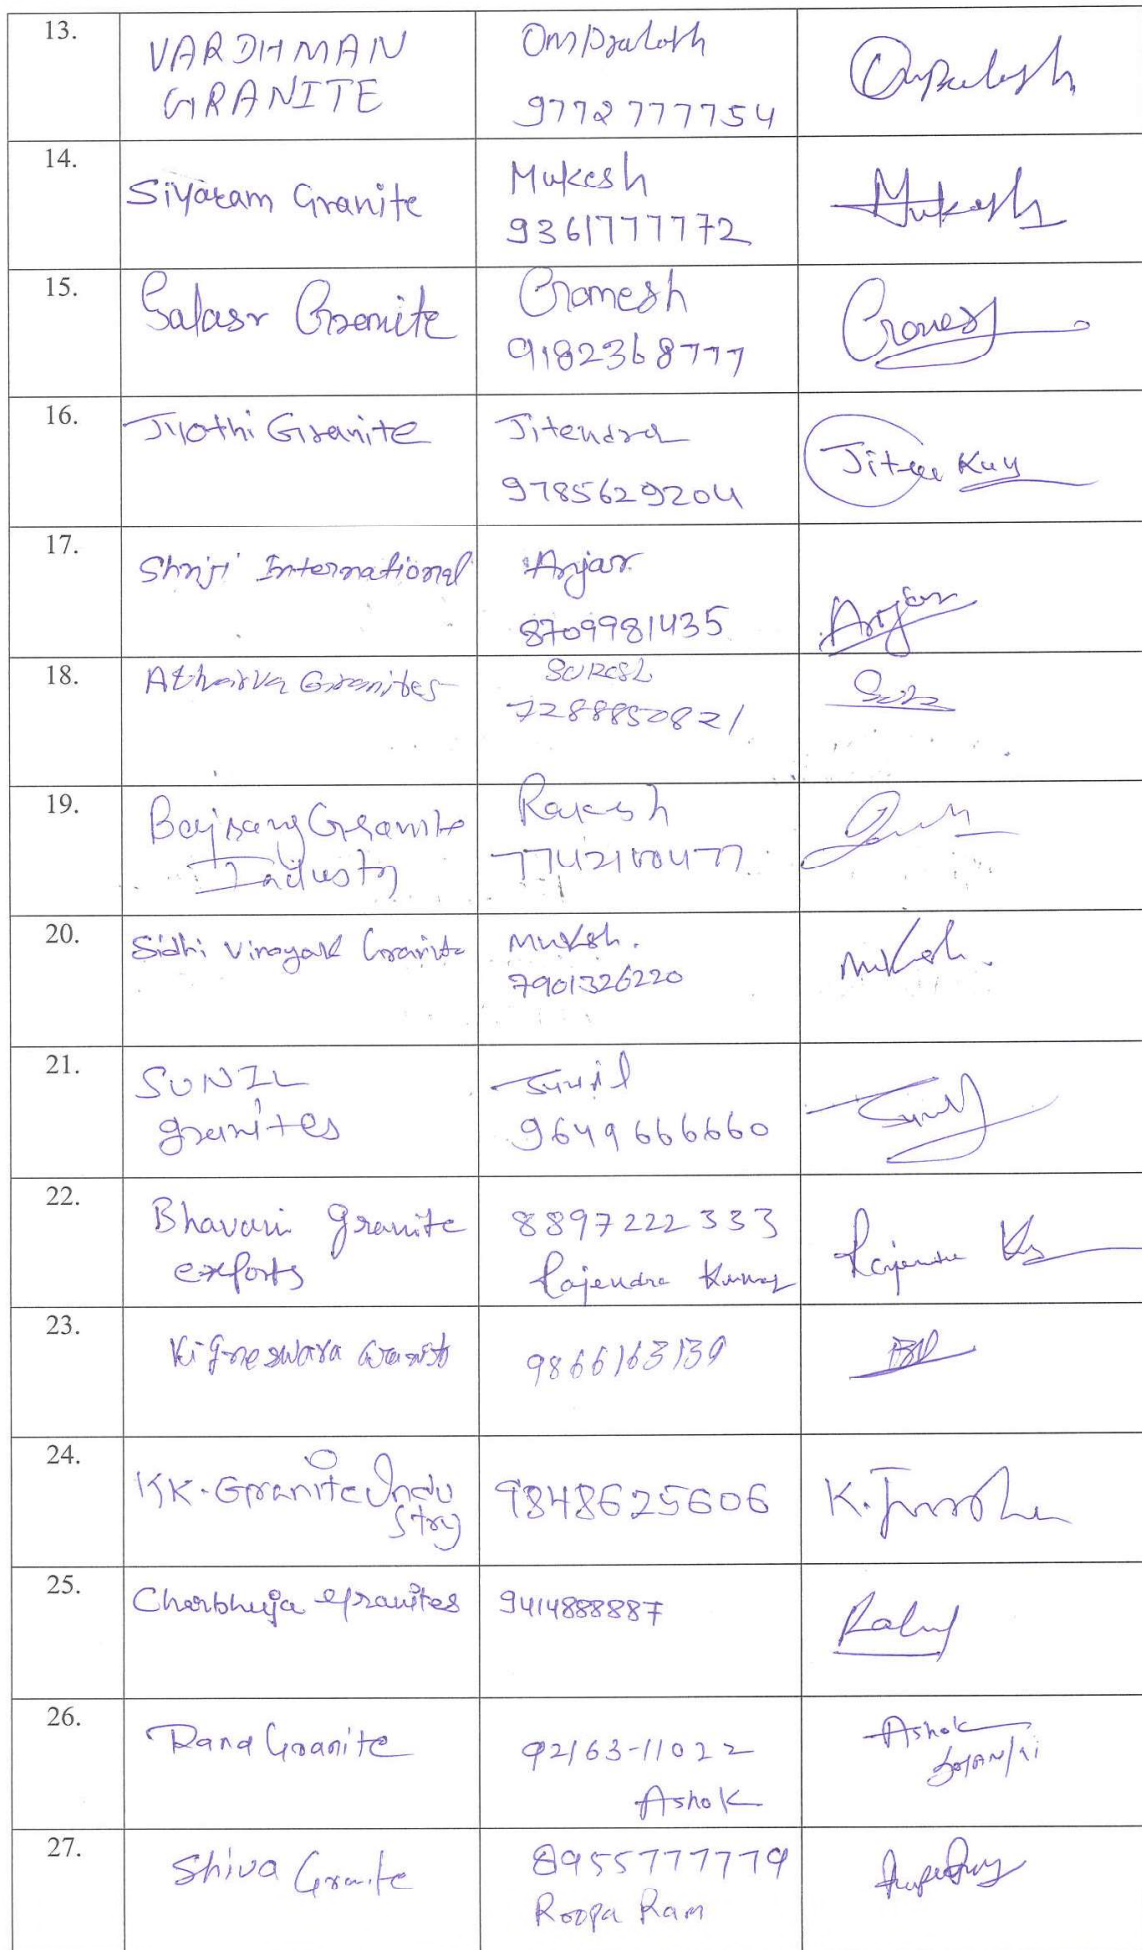 13.
VARDHMAN
GRANITE
Omprakash
9772777754
14.
Siyaram Granite
Mukesh
9361777772
Mukesh
15.
Salasr Granite
Gamesh
9182368777
16.
Jyothi Granite
Jitendra
9785629204
17.
Shriji International
Anjar
8709981435
Anjar
18.
Atharva Granites
SURESh
7288850821
19.
Bajrang Granite
Industry
Rakesh
20.
Sidhi Vinayak Granite
Mukesh.
7901326220
Mukesh.
21.
SUNIL
granites
Sunil
9649666660
Sunil
22.
Bhavani granite
exports
8897222333
Rajendra Kumar
Rajendra
23.
Vigneswara Granite
9866163139
24.
KK. Granite Indu
stry
9848625606
25.
Charbhuja granites
9414888887
26.
Rana Granite
92163-11022
Ashok
Ashok
27.
Shiva Granite
8955777779
Roopa Ram